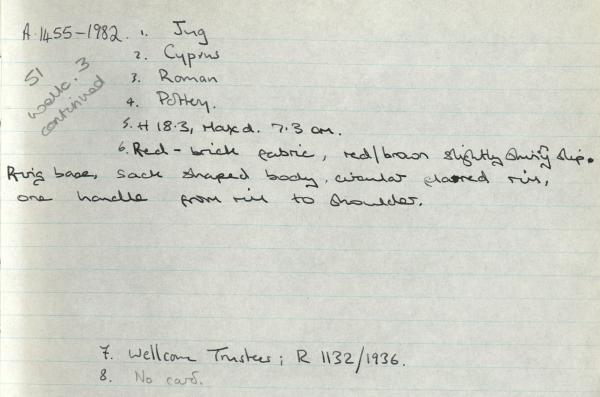 A 1455-1982. 1. Jug
2. Cyprus
3. Roman
51
wellc. 3
continued
4. Pottery.
5. H 18.3, Max d. 7.3 cm.
6. Red-brick fabric, red/brown slightly shiny slip.
Ring base, sack shaped body, circular flared rim,
one handle from rim to shoulder.
7. Wellcome Trustees; R 1132/1936.
8. No card.